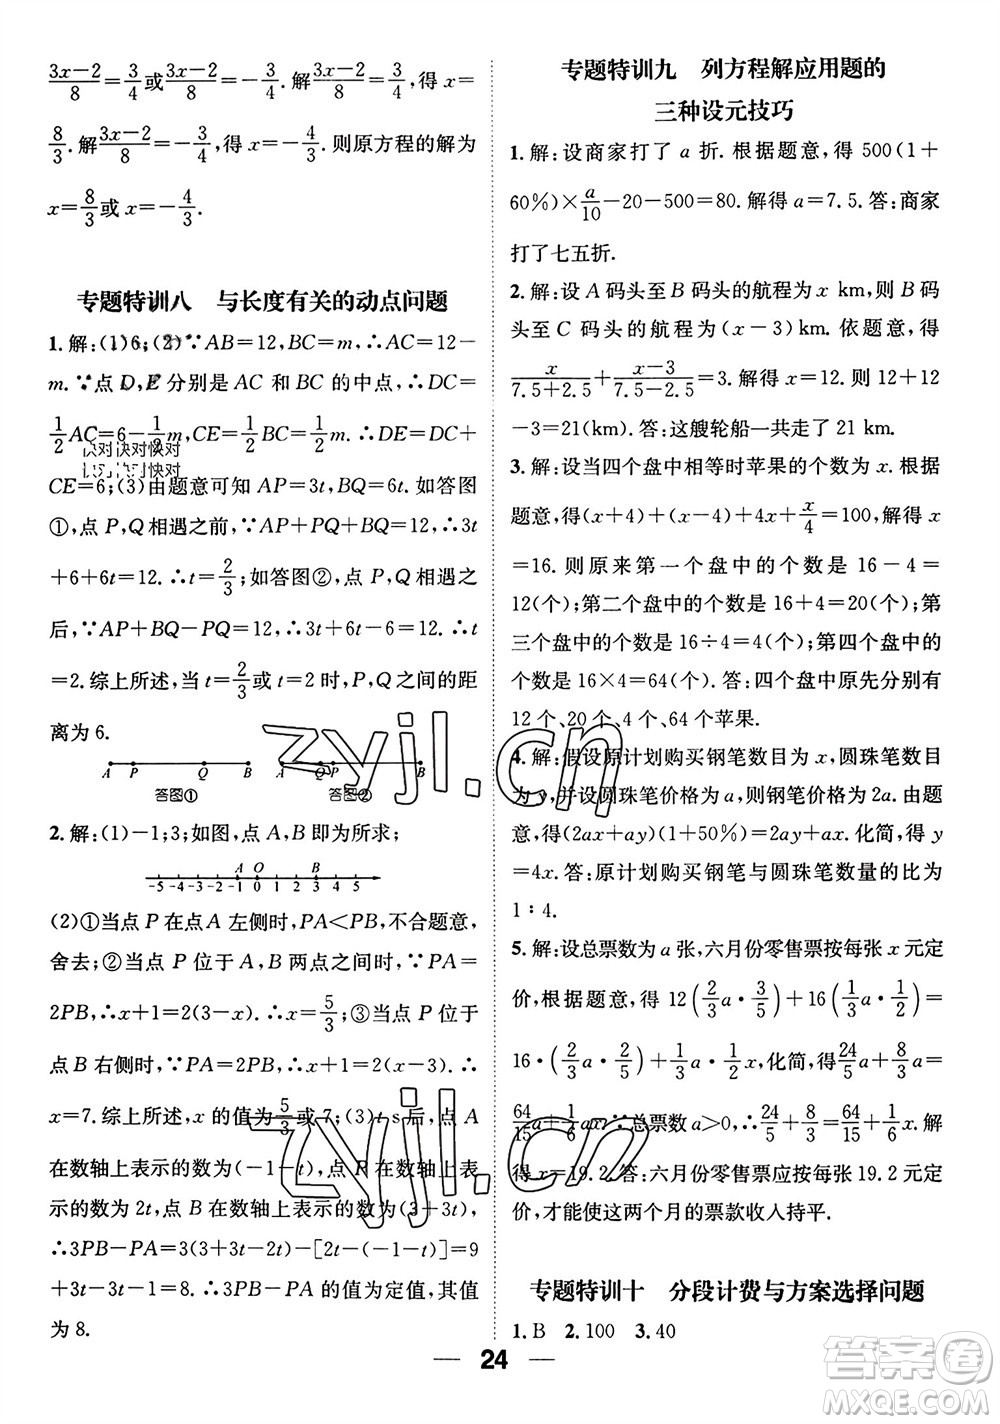 (3x−2)/8=3/4或(3x−2)/8=−3/4. 解(3x−2)/8=3/4,得 x=
8/3. 解(3x−2)/8=−3/4,得 x=−4/3. 则原方程的解为
x=8/3或 x=−4/3.
专题特训八 与长度有关的动点问题
1.解:(1)6;(2)∵AB=12,BC=m,∴AC=12−
m.∵点 D,E 分别是 AC 和 BC 的中点,∴DC=
1/2AC=6−1/2m,CE=1/2BC=1/2m.∴DE=DC+
CE=6;(3)由题意可知 AP=3t,BQ=6t.如答图
①,点 P,Q 相遇之前,∵AP+PQ+BQ=12,∴3t
+6+6t=12.∴t=2/3;如答图②,点 P,Q 相遇之
后,∵AP+BQ−PQ=12,∴3t+6t−6=12.∴t
=2.综上所述,当 t=2/3或 t=2 时,P,Q 之间的距
离为 6.
A P Q B
答图①
A Q P B
答图②
2.解:(1)−1;3;如图,点 A,B 即为所求;
A O B
−5 −4 −3 −2 −1 0 1 2 3 4 5
(2)①当点 P 在点A 左侧时,PA<PB,不合题意,
舍去;②当点 P 位于 A,B 两点之间时,∵PA=
2PB,∴x+1=2(3−x).∴x=5/3;③当点 P 位于
点 B 右侧时,∵PA=2PB,∴x+1=2(x−3).∴
x=7.综上所述,x 的值为5/3或 7;(3)t s后,点 A
在数轴上表示的数为(−1−t),点 P 在数轴上表
示的数为 2t,点 B 在数轴上表示的数为(3+3t),
∴3PB−PA=3(3+3t−2t)−[2t−(−1−t)]=9
+3t−3t−1=8.∴3PB−PA 的值为定值,其值
为 8.
专题特训九 列方程解应用题的
三种设元技巧
1.解:设商家打了 a 折.根据题意,得 500(1+
60%)×a/10−20−500=80.解得 a=7.5.答:商家
打了七五折.
2.解:设 A 码头至 B 码头的航程为 x km,则 B 码
头至 C 码头的航程为(x−3)km.依题意,得
x/(7.5+2.5)+(x−3)/(7.5−2.5)=3.解得 x=12.则 12+12
−3=21(km).答:这艘轮船一共走了 21 km.
3.解:设当四个盘中相等时苹果的个数为 x.根据
题意,得(x+4)+(x−4)+4x+x/4=100,解得 x
=16.则原来第一个盘中的个数是 16−4=
12(个);第二个盘中的个数是 16+4=20(个);第
三个盘中的个数是 16÷4=4(个);第四个盘中的
个数是 16×4=64(个).答:四个盘中原先分别有
12 个、20 个、4 个、64 个苹果.
4.解:假设原计划购买钢笔数目为 x,圆珠笔数目
为 y,并设圆珠笔价格为 a,则钢笔价格为 2a.由题
意,得(2ax+ay)(1+50%)=2ay+ax.化简,得 y
=4x.答:原计划购买钢笔与圆珠笔数量的比为
1∶4.
5.解:设总票数为 a 张,六月份零售票按每张 x 元定
价,根据题意,得 12(2/3a·3/5)+16(1/3a·1/2)=
16·(2/3a·2/5)+1/3a·1/2x,化简,得24/5a+8/3a=
64/15a+1/6ax,∵总票数 a>0,∴24/5+8/3=64/15+1/6x.解
得 x=19.2.答:六月份零售票应按每张 19.2 元定
价,才能使这两个月的票款收入持平.
专题特训十 分段计费与方案选择问题
1.B 2.100 3.40
24
zyjl.cn
zyjl.cn
答案圈
MXQE.COM